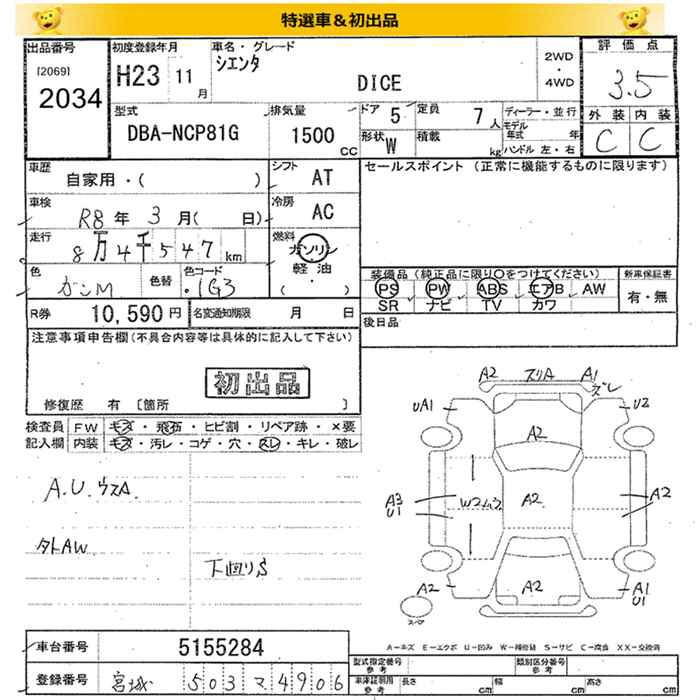 特選車&初出品
出品番号
[2069]
2034
初度登録年月
H23 11月
車名・グレード
シエンタ
DICE
2WD
・
4WD
評価点
3.5
外装 内装
C C
型式
DBA-NCP81G
排気量
1500
CC
ドア 5
定員 7人
形状 W
積載 kg
ディーラー・並行
モデル年式 年
ハンドル 左・右
車歴
自家用・( )
シフト AT
セールスポイント (正常に機能するものに限ります)
車検
R8年 3月( 日)
冷房 AC
走行
8万4千547km
燃料
ガソリン
軽油
( )
色
ガンM
色替
色コード
1G3
装備品(純正品に限り○をつけてください)
PS PW ABS エアB AW
SR ナビ TV カワ
新車保証書
有・無
R券 10,590円
名変通知期限 月 日
後日品
注意事項申告欄(不具合内容等は具体的に記入して下さい)
初出品
修復歴 有 [箇所 ]
検査員記入欄
FW キズ・飛石・ヒビ割・リペア跡・×要
内装 キズ・汚レ・コゲ・穴・スレ・キレ・破レ
A.U.ウスA
タトAW
下廻りS
A2 スリA A1
ズレ
UA1 U2
A2
A3
U1
Wコムラ
A2
A2
A2
A2
A1
U1
スペア
A-キズ E-エクボ U-凹み W-補修跡 S-サビ C-腐食 XX-交換済
車台番号 5155284
登録番号 宮城 503 マ 4906
型式指定番号
参考
類別区分番号
参考
車庫証明用
参考
長さ cm 幅 cm 高さ cm